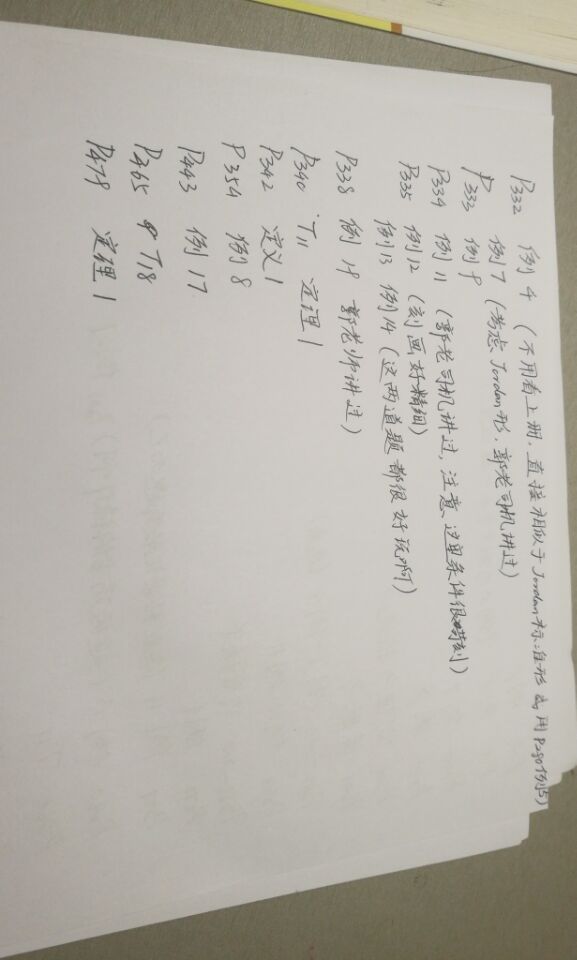 P332 例4 (不用看上册,直接相似于Jordan标准形 或用P280例15)
例7 (考虑Jordan形,郭老司机讲过)
P333 例9
P334 例11 (郭老司机讲过,注意这里条件很苛刻)
P335 例12 (刻画好精细)
例13 例14 (这两道题都很好玩啊)
P338 例18 郭老师讲过)
P340 T11 定理1
P342 定义1
P354 例8
P443 例17
P465 T18
P478 定理1